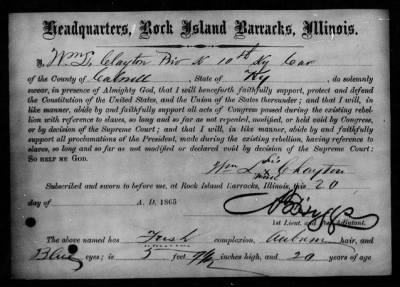 Headquarters, Rock Island Barracks, Illinois.
I, Wm L. Clayton Priv K 10th Ky Cav
of the County of , State of Ky, do solemnly
swear, in presence of Almighty God, that I will henceforth faithfully support, protect and defend
the Constitution of the United States, and the Union of the States thereunder; and that I will, in
like manner, abide by and faithfully support all acts of Congress passed during the existing rebel-
lion with reference to slaves, so long and so far as not repealed, modified, or held void by Congress,
or by decision of the Supreme Court; and that I will, in like manner, abide by and faithfully
support all proclamations of the President, made during the existing rebellion, having reference to
slaves, so long and so far as not modified or declared void by decision of the Supreme Court:
So help me God.
Wm L his Clayton
mark
Subscribed and sworn to before me, at Rock Island Barracks, Illinois, this 20
day of A. D. 1865
Briggs
1st Lieut. and Adjutant.
The above named has Fresh complexion, Auburn hair, and
Blue eyes; is 5 feet inches high, and 20 years of age